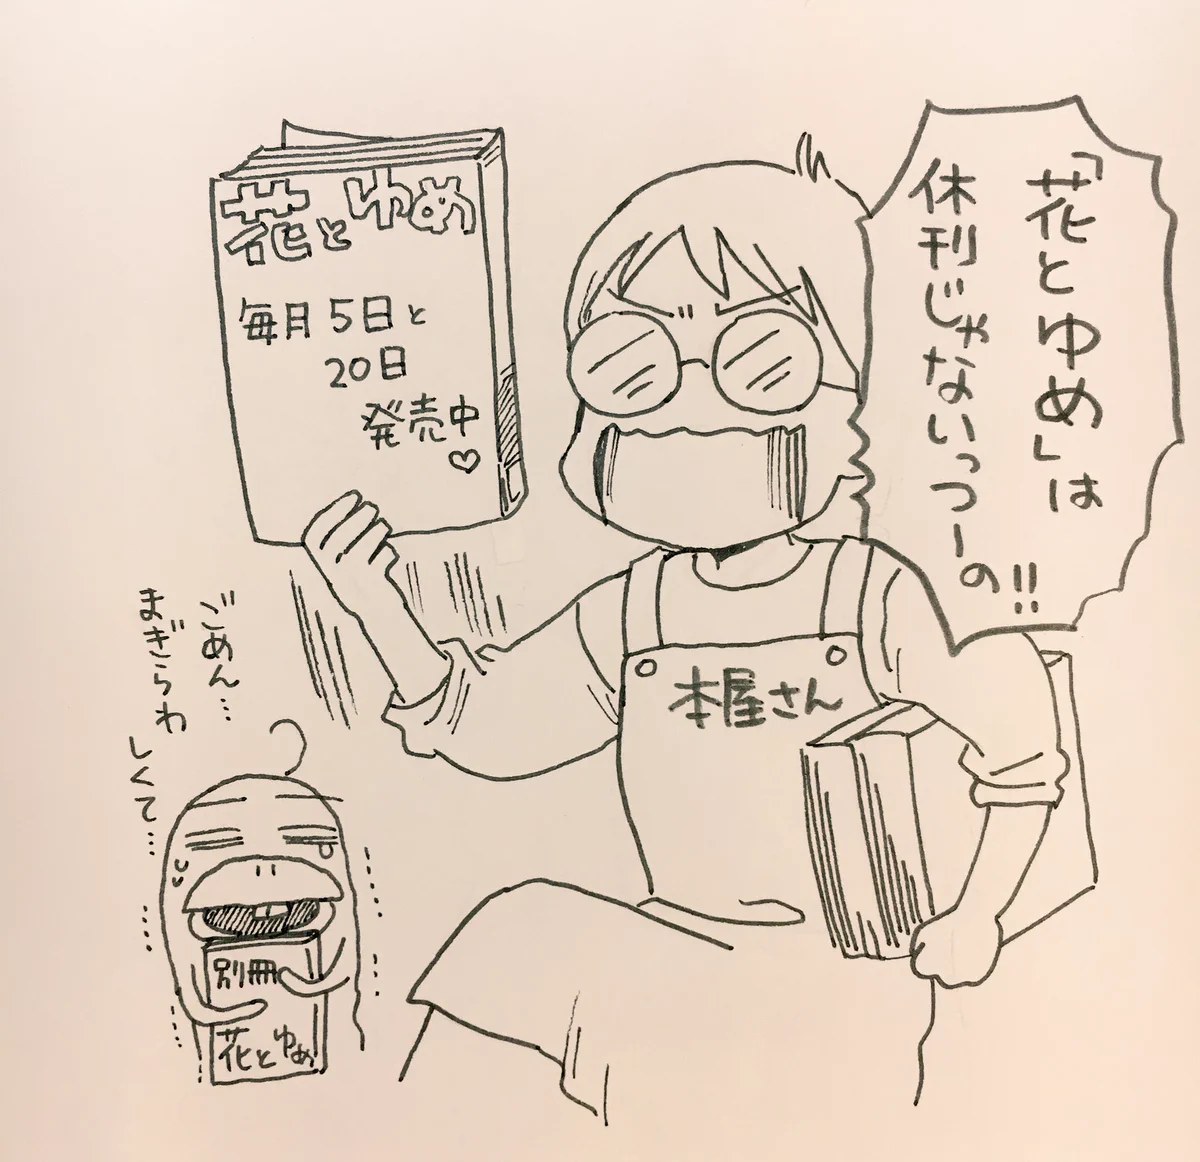 「花とゆめ」は
休刊じゃないっつーの!!
花とゆめ
毎月5日と
20日
発売中
♡
本屋さん
ごめん…
まぎらわ
しくて…
別冊
花とゆめ